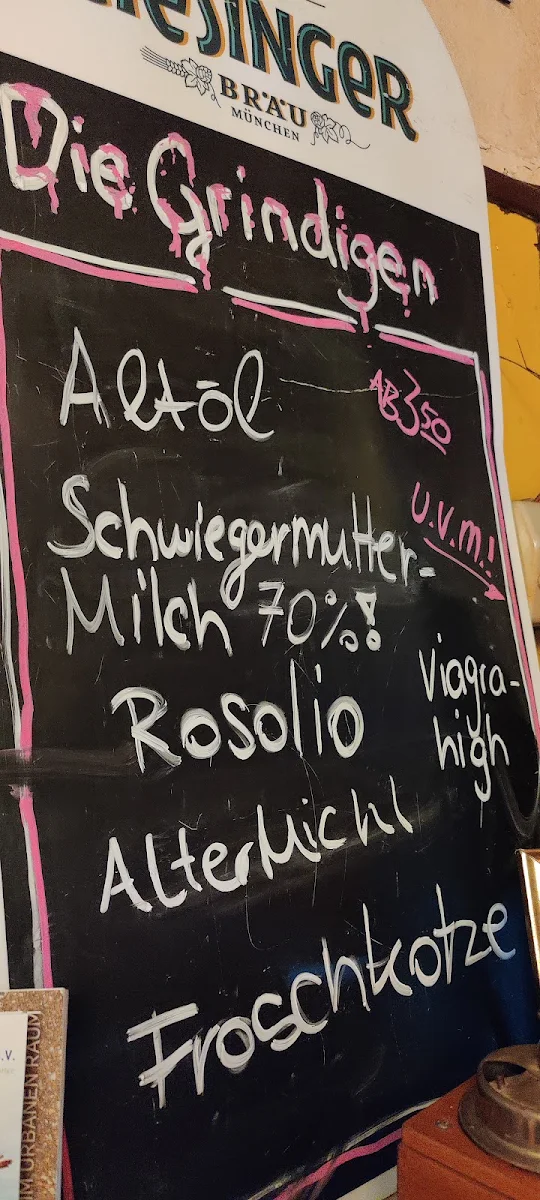 IESINGER
BRÄU
MÜNCHEN
Die Grindigen
Altöl
AB 350
U.V.m.!
Schwiegermutter-
Milch 70%!
Viagra-
high
Rosolio
Alter Michl
Froschkotze
.V.
IM URBANEN RAUM